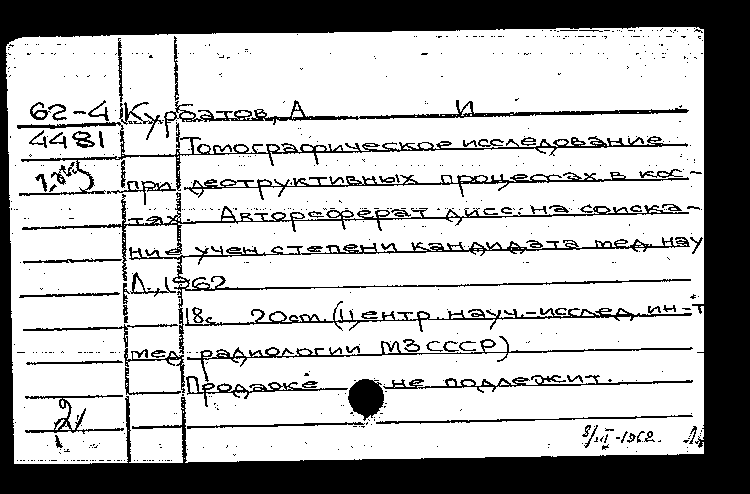 62-4 Курбатов, А И
4481 Томографическое исследование
при деструктивных процессах в кос-
тях. Автореферат дисс. на соиска-
ние учен. степени кандидата мед. нау
Л., 1962
18с. 20см. (Центр. науч.-исслед. ин-т
мед. радиологии МЗ СССР)
Продаже не подлежит.
2
-1962.